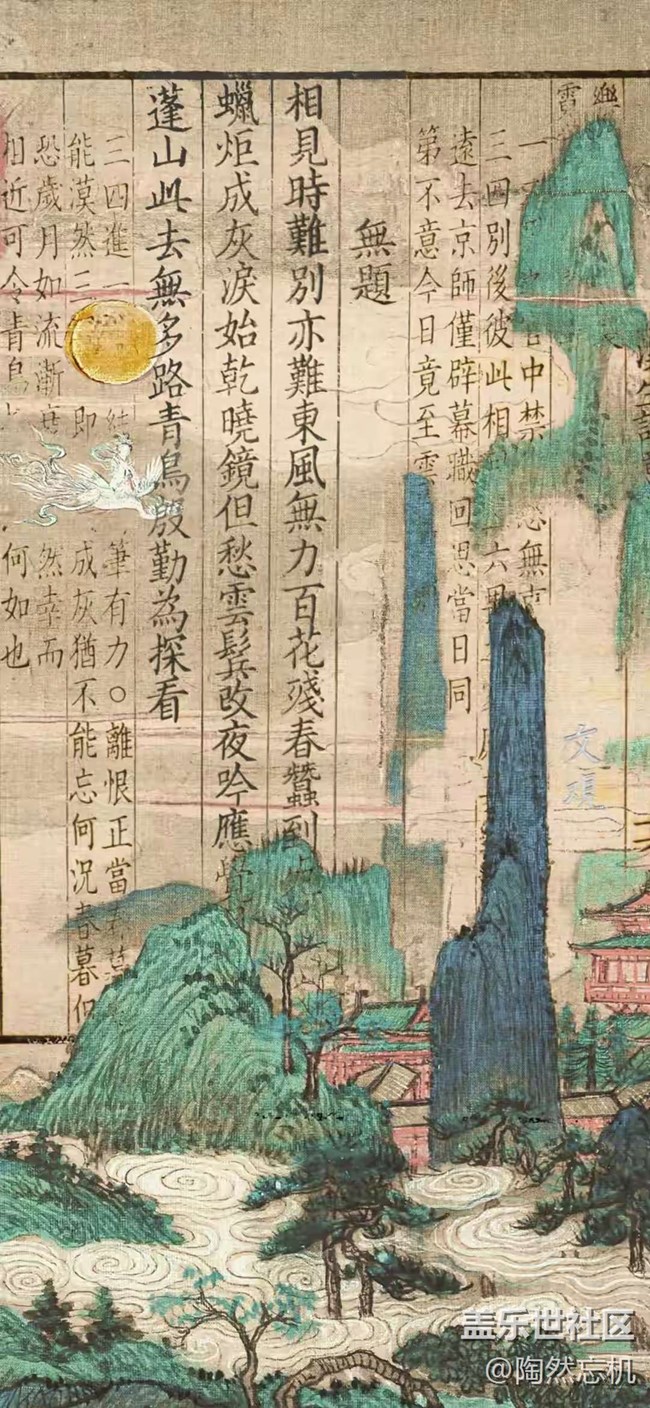 中禁
三四別後彼此相
遠去京師僅辟幕職回思當日同
第不意今日竟至雲
無題
相見時難別亦難東風無力百花殘春蠶到
蠟炬成灰淚始乾曉鏡但愁雲鬂改夜吟應
蓬山此去無多路青鳥殷勤為探看
三四進一 筆有力○離恨正當
能漠然三 即 成灰猶不能忘何況春暮
恐歲月如流漸 然幸而
相近可令青鳥 何如也
盖乐世社区
@陶然忘机